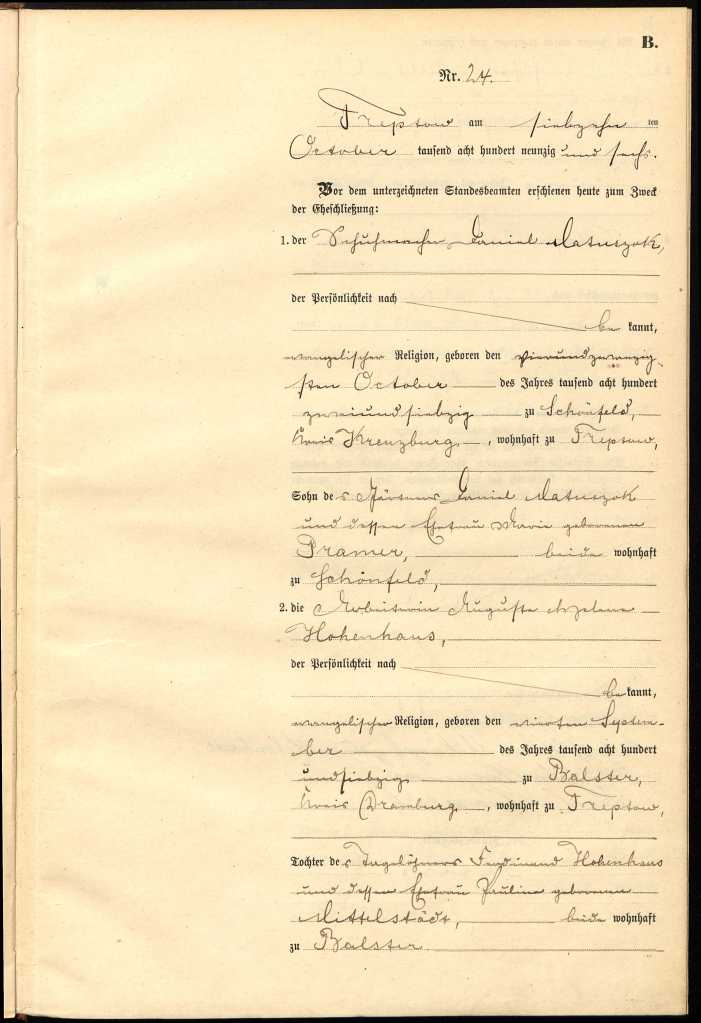 B.
Nr. 24.
Treptow am siebzehn ten
October tausend acht hundert neunzig und sechs.
Vor dem unterzeichneten Standesbeamten erschienen heute zum Zweck
der Eheschließung:
1. der Schuhmacher Daniel Matuszok,
der Persönlichkeit nach
be kannt,
evangelischer Religion, geboren den vierundzwanzig
sten October des Jahres tausend acht hundert
zweiundsiebzig zu Schönfeld,
Kreis Kreuzburg, wohnhaft zu Treptow,
Sohn des Daniel Matuszok
und dessen Ehefrau Marie geborenen
Pramer, beide wohnhaft
zu Schönfeld,
2. die Arbeiterin Auguste Helene
Hohenhaus,
der Persönlichkeit nach
be kannt,
evangelischer Religion, geboren den vierten Septem-
ber des Jahres tausend acht hundert
undsiebzig zu Balster,
Kreis Dramburg, wohnhaft zu Treptow,
Tochter des Tagelöhners Ferdinand Hohenhaus
und dessen Ehefrau Pauline geborenen
Mittelstädt, beide wohnhaft
zu Balster